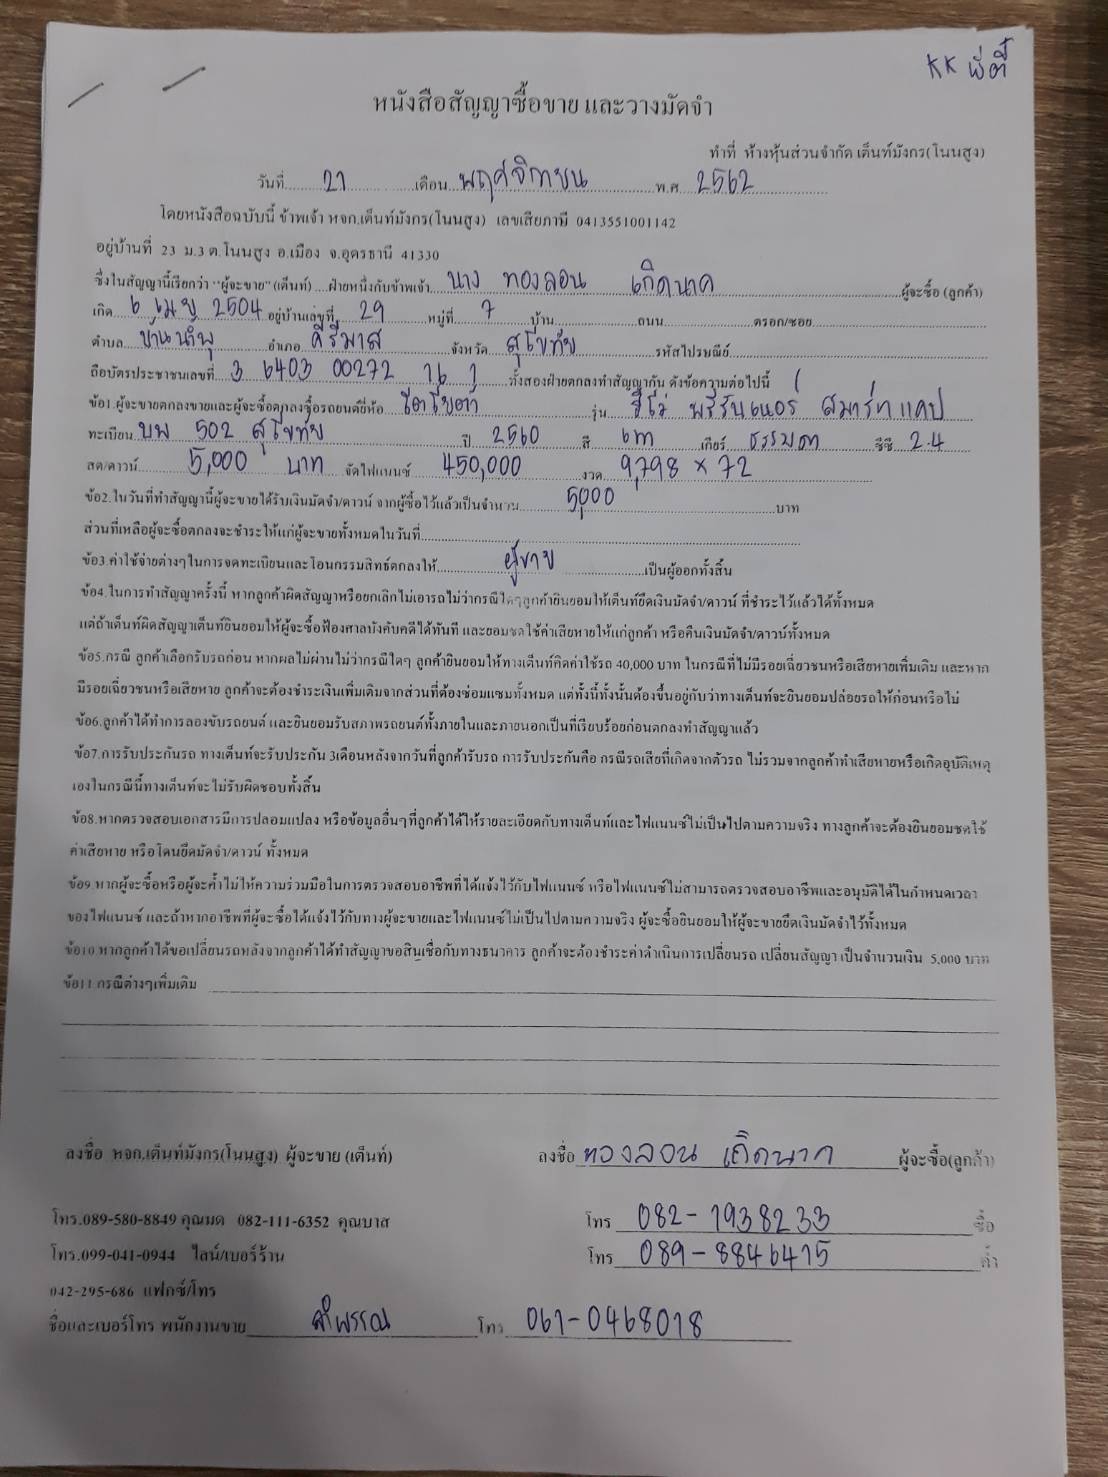 KK พี่ตี๋
หนังสือสัญญาซื้อขาย และวางมัดจำ
ทำที่ ห้างหุ้นส่วนจำกัด เต็นท์มังกร(โนนสูง)
วันที่ 21 เดือน พฤศจิกายน พ.ศ. 2562
โดยหนังสือฉบับนี้ ข้าพเจ้า หจก.เต็นท์มังกร(โนนสูง) เลขเสียภาษี 0413551001142
อยู่บ้านที่ 23 ม.3 ต.โนนสูง อ.เมือง จ.อุดรธานี 41330
ซึ่งในสัญญานี้เรียกว่า "ผู้จะขาย" (เต็นท์) ....ฝ่ายหนึ่งกับข้าพเจ้า นาง ทองลอน เกิดนาค ผู้จะซื้อ (ลูกค้า)
เกิด 6 เมย 2504 อยู่บ้านเลขที่ 29 หมู่ที่ 7 บ้าน ถนน ตรอก/ซอย
ตำบล บ้านน้ำพุ อำเภอ คีรีมาศ จังหวัด สุโขทัย รหัสไปรษณีย์
ถือบัตรประชาชนเลขที่ 3 6403 00272 16 1 ทั้งสองฝ่ายตกลงทำสัญญากัน ดังข้อความต่อไปนี้
ข้อ1.ผู้จะขายตกลงขายและผู้จะซื้อตกลงซื้อรถยนต์ยี่ห้อ โตโยต้า รุ่น รีโว่ พรีรันเนอร์ สมาร์ท แคป
ทะเบียน บพ 502 สุโขทัย ปี 2560 สี เทา เกียร์ ธรรมดา ซีซี 2.4
สด/ดาวน์ 5,000 บาท จัดไฟแนนซ์ 450,000 งวด 9,798 x 72
ข้อ2.ในวันที่ทำสัญญานี้ผู้จะขายได้รับเงินมัดจำ/ดาวน์ จากผู้ซื้อไว้แล้วเป็นจำนวน 5,000 บาท
ส่วนที่เหลือผู้จะซื้อตกลงจะชำระให้แก่ผู้จะขายทั้งหมดในวันที่
ข้อ3.ค่าใช้จ่ายต่างๆในการจดทะเบียนและโอนกรรมสิทธ์ตกลงให้ ผู้ขาย เป็นผู้ออกทั้งสิ้น
ข้อ4.ในการทำสัญญาครั้งนี้ หากลูกค้าผิดสัญญาหรือยกเลิกไม่เอารถไม่ว่ากรณีใดๆลูกค้ายินยอมให้เต็นท์ยึดเงินมัดจำ/ดาวน์ ที่ชำระไว้แล้วได้ทั้งหมด
แต่ถ้าเต็นท์ผิดสัญญาเต็นท์ยินยอมให้ผู้จะซื้อฟ้องศาลบังคับคดีได้ทันที และยอมชดใช้ค่าเสียหายให้แก่ลูกค้า หรือคืนเงินมัดจำ/ดาวน์ทั้งหมด
ข้อ5.กรณี ลูกค้าเลือกรับรถก่อน หากผลไม่ผ่านไม่ว่ากรณีใดๆ ลูกค้ายินยอมให้ทางเต็นท์คิดค่าใช้รถ 40,000 บาท ในกรณีที่ไม่มีรอยเฉี่ยวชนหรือเสียหายเพิ่มเติม และหาก
มีรอยเฉี่ยวชนหรือเสียหาย ลูกค้าจะต้องชำระเงินเพิ่มเติมจากส่วนที่ต้องซ่อมแซมทั้งหมด แต่ทั้งนี้ทั้งนั้นต้องขึ้นอยู่กับว่าทางเต็นท์จะยินยอมปล่อยรถให้ก่อนหรือไม่
ข้อ6.ลูกค้าได้ทำการลองขับรถยนต์ และยินยอมรับสภาพรถยนต์ทั้งภายในและภายนอกเป็นที่เรียบร้อยก่อนตกลงทำสัญญาแล้ว
ข้อ7.การรับประกันรถ ทางเต็นท์จะรับประกัน 3เดือนหลังจากวันที่ลูกค้ารับรถ การรับประกันคือ กรณีรถเสียที่เกิดจากตัวรถ ไม่รวมจากลูกค้าทำเสียหายหรือเกิดอุบัติเหตุ
เองในกรณีนี้ทางเต็นท์จะไม่รับผิดชอบทั้งสิ้น
ข้อ8.หากตรวจสอบเอกสารมีการปลอมแปลง หรือข้อมูลอื่นๆที่ลูกค้าได้ให้รายละเอียดกับทางเต็นท์และไฟแนนซ์ไม่เป็นไปตามความจริง ทางลูกค้าจะต้องยินยอมชดใช้
ค่าเสียหาย หรือโดนยึดมัดจำ/ดาวน์ ทั้งหมด
ข้อ9.หากผู้จะซื้อหรือผู้จะค้ำไม่ให้ความร่วมมือในการตรวจสอบอาชีพที่ได้แจ้งไว้กับไฟแนนซ์ หรือไฟแนนซ์ไม่สามารถตรวจสอบอาชีพและอนุมัติได้ในกำหนดเวลา
ของไฟแนนซ์ และถ้าหากอาชีพที่ผู้จะซื้อได้แจ้งไว้กับทางผู้จะขายและไฟแนนซ์ไม่เป็นไปตามความจริง ผู้จะซื้อยินยอมให้ผู้จะขายยึดเงินมัดจำไว้ทั้งหมด
ข้อ10.หากลูกค้าได้ขอเปลี่ยนรถหลังจากลูกค้าได้ทำสัญญาขอสินเชื่อกับทางธนาคาร ลูกค้าจะต้องชำระค่าดำเนินการเปลี่ยนรถ เปลี่ยนสัญญา เป็นจำนวนเงิน 5,000 บาท
ข้อ11.กรณีต่างๆเพิ่มเติม
ลงชื่อ หจก.เต็นท์มังกร(โนนสูง) ผู้จะขาย (เต็นท์) ลงชื่อ ทองลอน เกิดนาค ผู้จะซื้อ(ลูกค้า)
โทร.089-580-8849 คุณมด 082-111-6352 คุณบาส โทร 082-1938233 ซื้อ
โทร.099-041-0944 ไลน์/เบอร์ร้าน โทร 089-8846415 ค้ำ
042-295-686 แฟกซ์/โทร
ชื่อและเบอร์โทร พนักงานขาย ลำพรรณ โทร 061-0468018